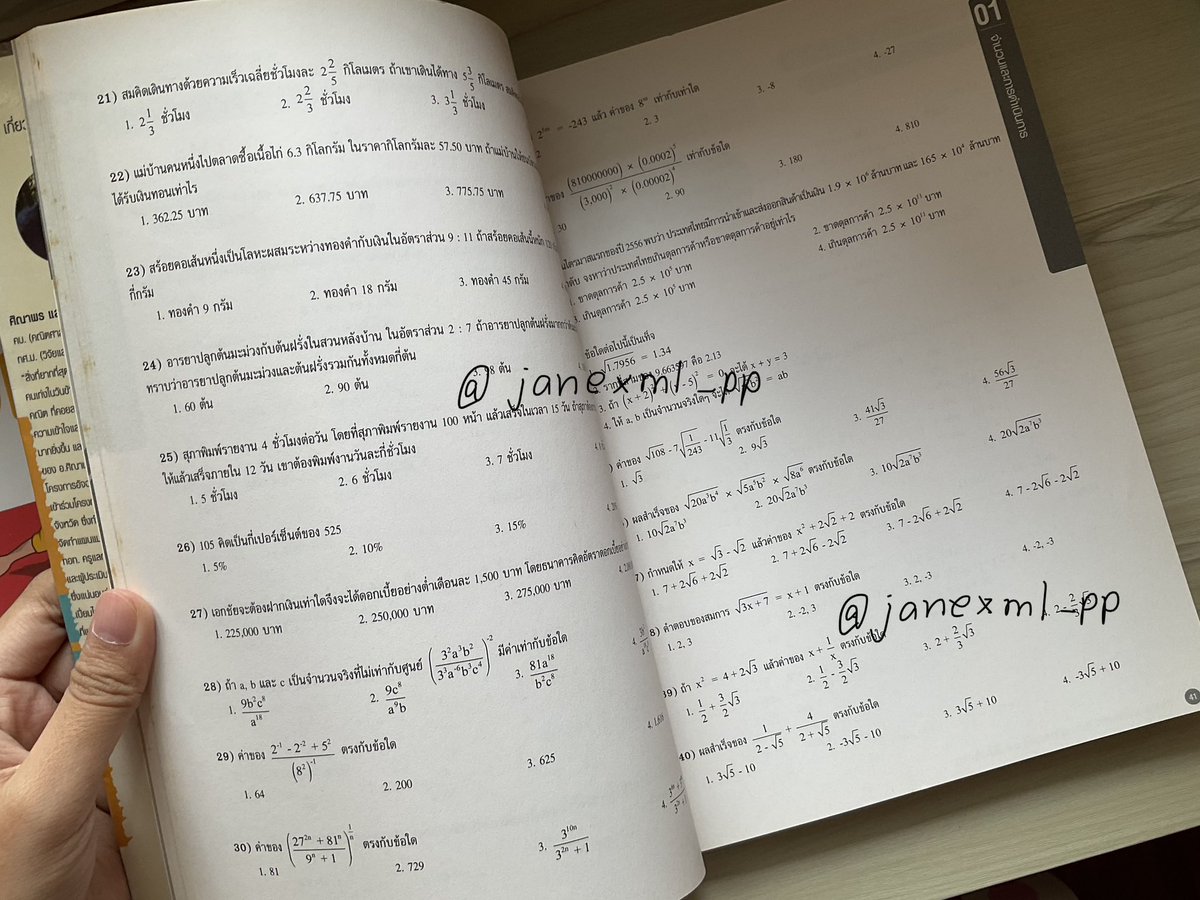 เกี่ยว
ศิณาพร และ
คบ. (คณิตศา
กศ.ม. (วิจัยแล
คณิต ที่คอยส
ความเข้าใจแล
21) สมคิดเดินทางด้วยความเร็วเฉลี่ยชั่วโมงละ 2 2/5 กิโลเมตร ถ้าเขาเดินได้ทาง 5 3/5 กิโลเมตร
1. 2 1/3 ชั่วโมง 2. 2 2/3 ชั่วโมง 3. 3 1/3 ชั่วโมง
22) แม่บ้านคนหนึ่งไปตลาดซื้อเนื้อไก่ 6.3 กิโลกรัม ในราคากิโลกรัมละ 57.50 บาท ถ้าแม่บ้าน
ได้รับเงินทอนเท่าไร
1. 362.25 บาท 2. 637.75 บาท 3. 775.75 บาท
23) สร้อยคอเส้นหนึ่งเป็นโลหะผสมระหว่างทองคำกับเงินในอัตราส่วน 9 : 11 ถ้าสร้อยคอเส้นนี้หนัก
กี่กรัม
1. ทองคำ 9 กรัม 2. ทองคำ 18 กรัม 3. ทองคำ 45 กรัม
24) อารยาปลูกต้นมะม่วงกับต้นฝรั่งในสวนหลังบ้าน ในอัตราส่วน 2 : 7 ถ้าอารยาปลูกต้นฝรั่งมากกว่า
ทราบว่าอารยาปลูกต้นมะม่วงและต้นฝรั่งรวมกันทั้งหมดกี่ต้น
1. 60 ต้น 2. 90 ต้น 8 ต้น
25) สุภาพิมพ์รายงาน 4 ชั่วโมงต่อวัน โดยที่สุภาพิมพ์รายงาน 100 หน้า แล้วเสร็จในเวลา 15 วัน
ให้แล้วเสร็จภายใน 12 วัน เขาต้องพิมพ์งานวันละกี่ชั่วโมง
1. 5 ชั่วโมง 2. 6 ชั่วโมง 3. 7 ชั่วโมง
26) 105 คิดเป็นกี่เปอร์เซ็นต์ของ 525
1. 5% 2. 10% 3. 15%
27) เอกชัยจะต้องฝากเงินเท่าใดจึงจะได้ดอกเบี้ยอย่างต่ำเดือนละ 1,500 บาท โดยธนาคารคิดอัตราดอกเบี้ย
1. 225,000 บาท 2. 250,000 บาท 3. 275,000 บาท
28) ถ้า a, b และ c เป็นจำนวนจริงที่ไม่เท่ากับศูนย์ (3²a³b²/3³a⁻⁶b³c⁴)⁻² มีค่าเท่ากับข้อใด
1. 9b²c⁸/a¹⁸ 2. 9c⁸/a⁹b 3. 81a¹⁸/b²c⁸
29) ค่าของ (2⁻¹ - 2⁻² + 5²)/(8²)⁻¹ ตรงกับข้อใด
1. 64 2. 200 3. 625
30) ค่าของ ((27²ⁿ + 81ⁿ)/(9ⁿ + 1))^(1/n) ตรงกับข้อใด
1. 81 2. 729 3. 3¹⁰ⁿ/(3²ⁿ + 1)
01 จำนวนและการดำเนินการ
= -243 แล้ว ค่าของ 8ᵐ เท่ากับเท่าใด
2. 3 3. -8 4. -27
((810000000) × (0.0002)⁵)/((3,000)² × (0.00002)⁴) เท่ากับข้อใด
30 2. 90 3. 180 4. 810
ไตรมาสแรกของปี 2556 พบว่า ประเทศไทยมีการนำเข้าและส่งออกสินค้าเป็นเงิน 1.9 × 10⁶ ล้านบาท และ 165 × 10⁴ ล้านบาท
จงหาว่าประเทศไทยเกินดุลการค้าหรือขาดดุลการค้าอยู่เท่าไร
1. ขาดดุลการค้า 2.5 × 10⁵ บาท 2. ขาดดุลการค้า 2.5 × 10¹¹ บาท
3. เกินดุลการค้า 2.5 × 10⁵ บาท 4. เกินดุลการค้า 2.5 × 10¹¹ บาท
ข้อใดต่อไปนี้เป็นเท็จ
√1.7956 = 1.34
9.663597 คือ 2.13
3. ถ้า (x + 2)² = 0 จะได้ x + y = 3
4. ให้ a, b เป็นจำนวนจริงใดๆ = ab
ค่าของ √108 - 7√(1/243) - 11√(1/3) ตรงกับข้อใด
1. √3 2. 9√3 3. 41√3/27 4. 56√3/27
ผลสำเร็จของ √20a³b⁴ × √5a⁵b² × √8a⁶ ตรงกับข้อใด
1. 10√2a⁷b³ 2. 20√2a⁷b³ 3. 10√2a⁷b³ 4. 20√2a⁷b³
7) กำหนดให้ x = √3 - √2 แล้วค่าของ x² + 2√2 + 2 ตรงกับข้อใด
1. 7 + 2√6 + 2√2 2. 7 + 2√6 - 2√2 3. 7 - 2√6 + 2√2 4. 7 - 2√6 - 2√2
8) คำตอบของสมการ √3x + 7 = x + 1 ตรงกับข้อใด
1. 2, 3 2. -2, 3 3. 2, -3 4. -2, -3
39) ถ้า x² = 4 + 2√3 แล้วค่าของ x + 1/x ตรงกับข้อใด
1. 1/2 + 3/2√3 2. 1/2 - 3/2√3 3. 2 + 2/3√3
40) ผลสำเร็จของ 1/(2 - √5) + 4/(2 + √5) ตรงกับข้อใด
1. 3√5 - 10 2. -3√5 - 10 3. 3√5 + 10 4. -3√5 + 10
41
@janexml_pp
@janexml_pp